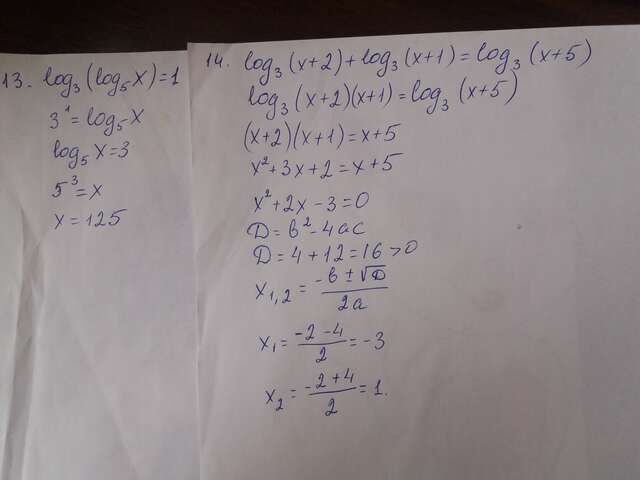 13. log₃(log₅x)=1
3¹=log₅x
log₅x=3
5³=x
x=125
14. log₃(x+2)+log₃(x+1)=log₃(x+5)
log₃(x+2)(x+1)=log₃(x+5)
(x+2)(x+1)=x+5
x²+3x+2=x+5
x²+2x-3=0
D=b²-4ac
D=4+12=16>0
x₁,₂=(-b±√D)/2a
x₁=(-2-4)/2=-3
x₂=(-2+4)/2=1.